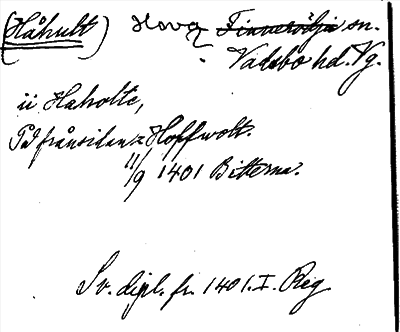 (Håhult) Hova Finnerödja sn.
Vadsbo hd. Vg.
ii Haholte,
På frånsidan: Hoffwolt.
11/9 1401 Bitterna.
Sv. dipl. fr. 1401. I. Reg